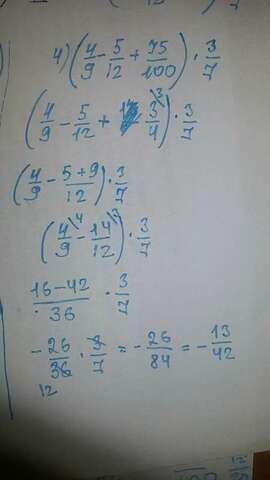 4) (4/9 - 5/12 + 75/100) · 3/7
(4/9 - 5/12 + 3/4 ^3) · 3/7
(4/9 - 5+9/12) · 3/7
(4/9 ^4 - 14/12 ^3) · 3/7
16-42/36 · 3/7
- 26/36 · 3/7 = - 26/84 = - 13/42
12